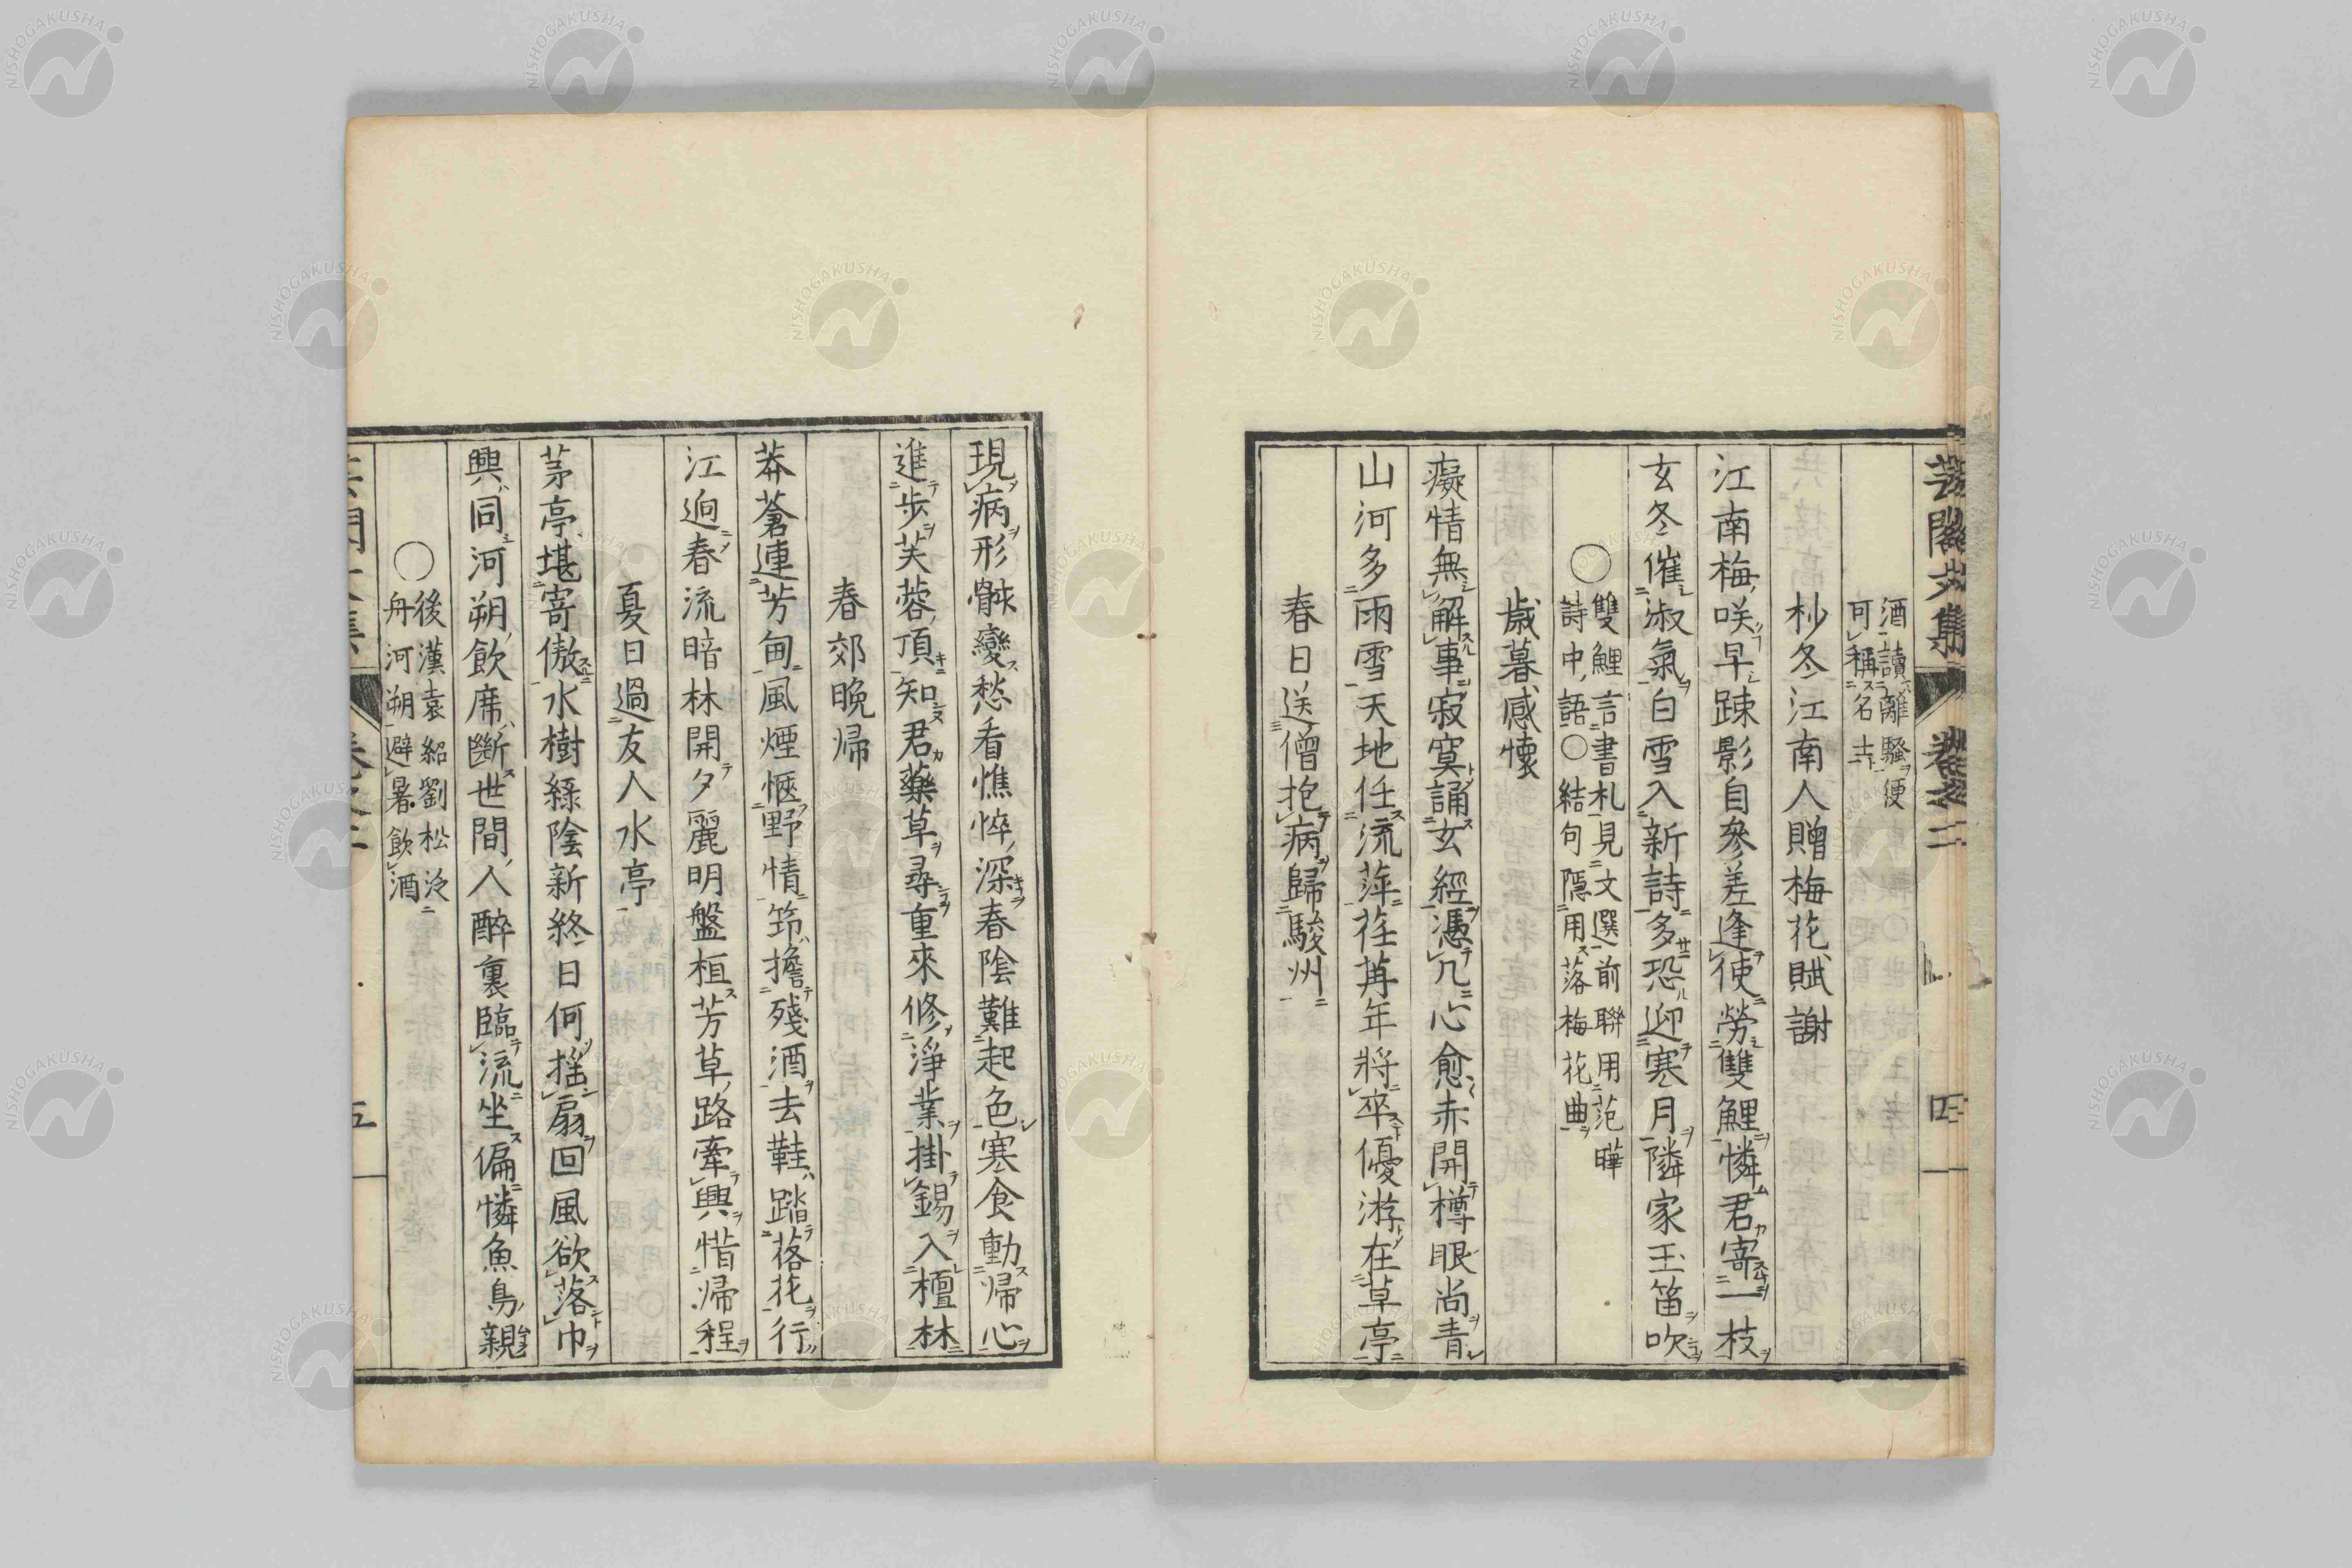 酒讀離騷便
可稱名士
杪冬江南人贈梅花賦謝
江南梅咲早踈影自參差逢使勞雙鯉憐君寄一枝
玄冬催淑氣白雪入新詩多恐迎寒月隣家玉笛吹
○雙鯉言書札見文選前聯用范曄
詩中語○結句隱用落梅花曲
歲暮感懷
癡情無解事寂寞誦玄經憑几心愈赤開樽眼尚青
山河多雨雪天地任流萍荏苒年將卒優游在草亭
春日送僧抱病歸駿州
現病形骸變愁看憔悴深春陰難起色寒食動歸心
進步芙蓉頂知君藥草尋重來修淨業掛錫入檀林
春郊晚歸
莽蒼連芳甸風煙愜野情筇擔殘酒去鞋踏落花行
江迥春流暗林開夕麗明盤桓芳草路牽興惜歸程
夏日過友人水亭
茅亭堪寄傲水樹綠陰新終日何搖扇回風欲落巾
興同河朔飲席斷世間人醉裏臨流坐偏憐魚鳥親
○後漢袁紹劉松泛
舟河朔避暑飲酒
卷之二
四
五
NISHOGAKUSHA